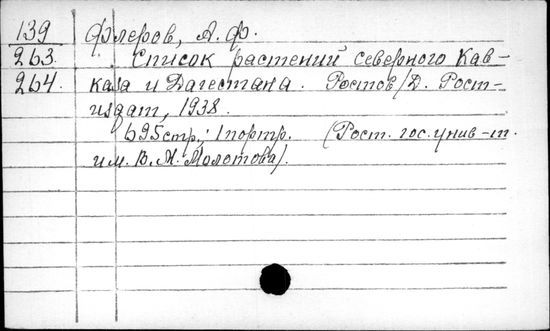 139 Флеров, А. Ф.
263 Список растений северного Кав-
264 каза и Дагестана. Ростов/Д. Рост-
издат, 1938.
695стр.; 1портр. (Рост. гос. унив-т.
им. В. М. Молотова).